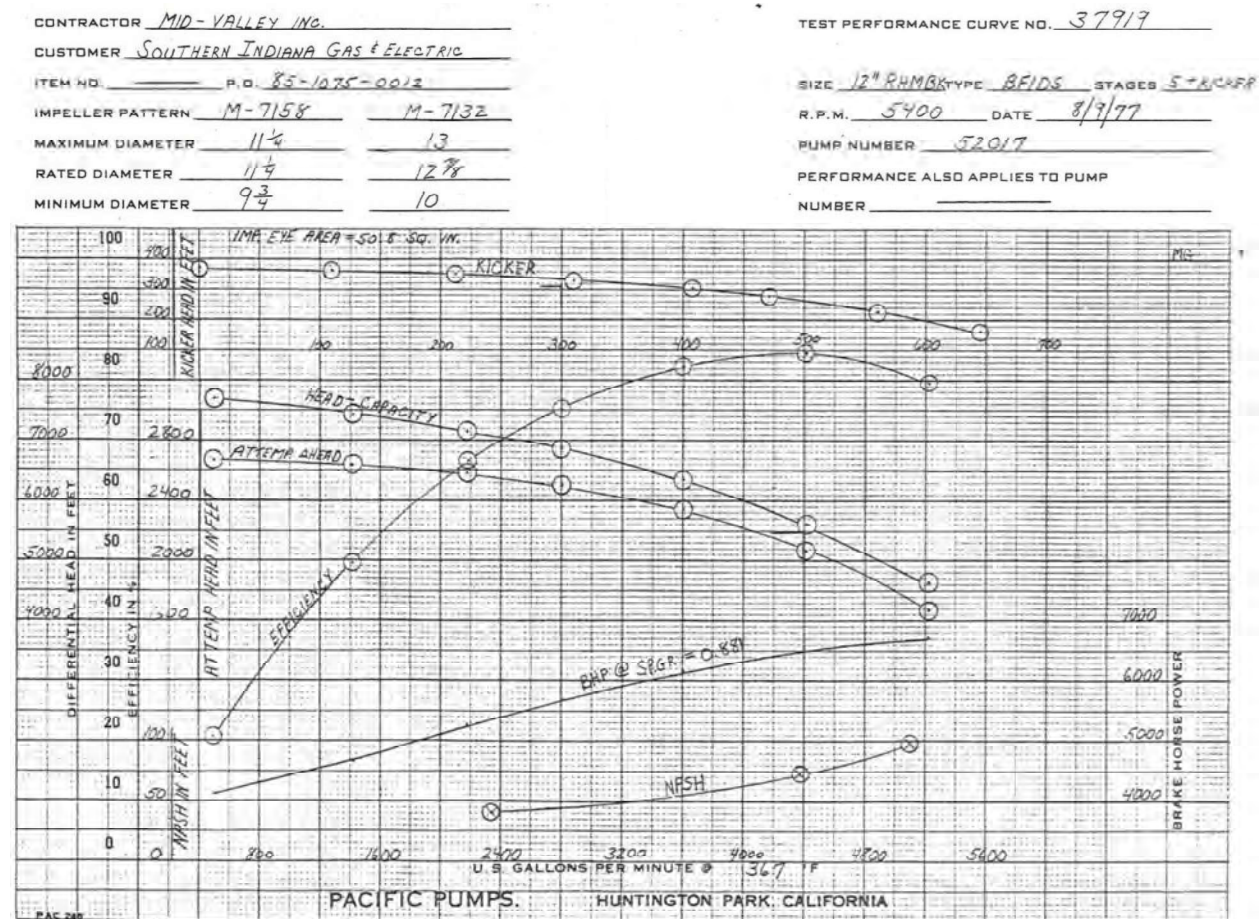 CONTRACTOR MID-VALLEY INC.
CUSTOMER SOUTHERN INDIANA GAS & ELECTRIC
ITEM NO. P.O. 85-1075-0012
IMPELLER PATTERN M-7158 M-7132
MAXIMUM DIAMETER 11 1/4 13
RATED DIAMETER 11 1/4 12 7/8
MINIMUM DIAMETER 9 3/4 10
TEST PERFORMANCE CURVE NO. 37919
SIZE 12" RHMBK TYPE BFIDS STAGES 5+KICKER
R.P.M. 5400 DATE 8/9/77
PUMP NUMBER 52017
PERFORMANCE ALSO APPLIES TO PUMP
NUMBER
IMP. EYE AREA = 50.8 SQ. IN.
MG
KICKER
KICKER HEAD IN FEET
400
300
200
100
100 200 300 400 500 600 700
HEAD-CAPACITY
ATTEMP. HEAD
EFFICIENCY
BHP @ SP.GR. = 0.881
NPSH
DIFFERENTIAL HEAD IN FEET
8000
7000
6000
5000
4000
EFFICIENCY IN %
100
90
80
70
60
50
40
30
20
10
0
ATTEMP HEAD IN FEET
2800
2400
2000
1600
NPSH IN FEET
100
50
0
BRAKE HORSE POWER
7000
6000
5000
4000
800 1600 2400 3200 4000 4800 5600
U.S. GALLONS PER MINUTE @ 367 °F
PACIFIC PUMPS. HUNTINGTON PARK, CALIFORNIA
PAC 240